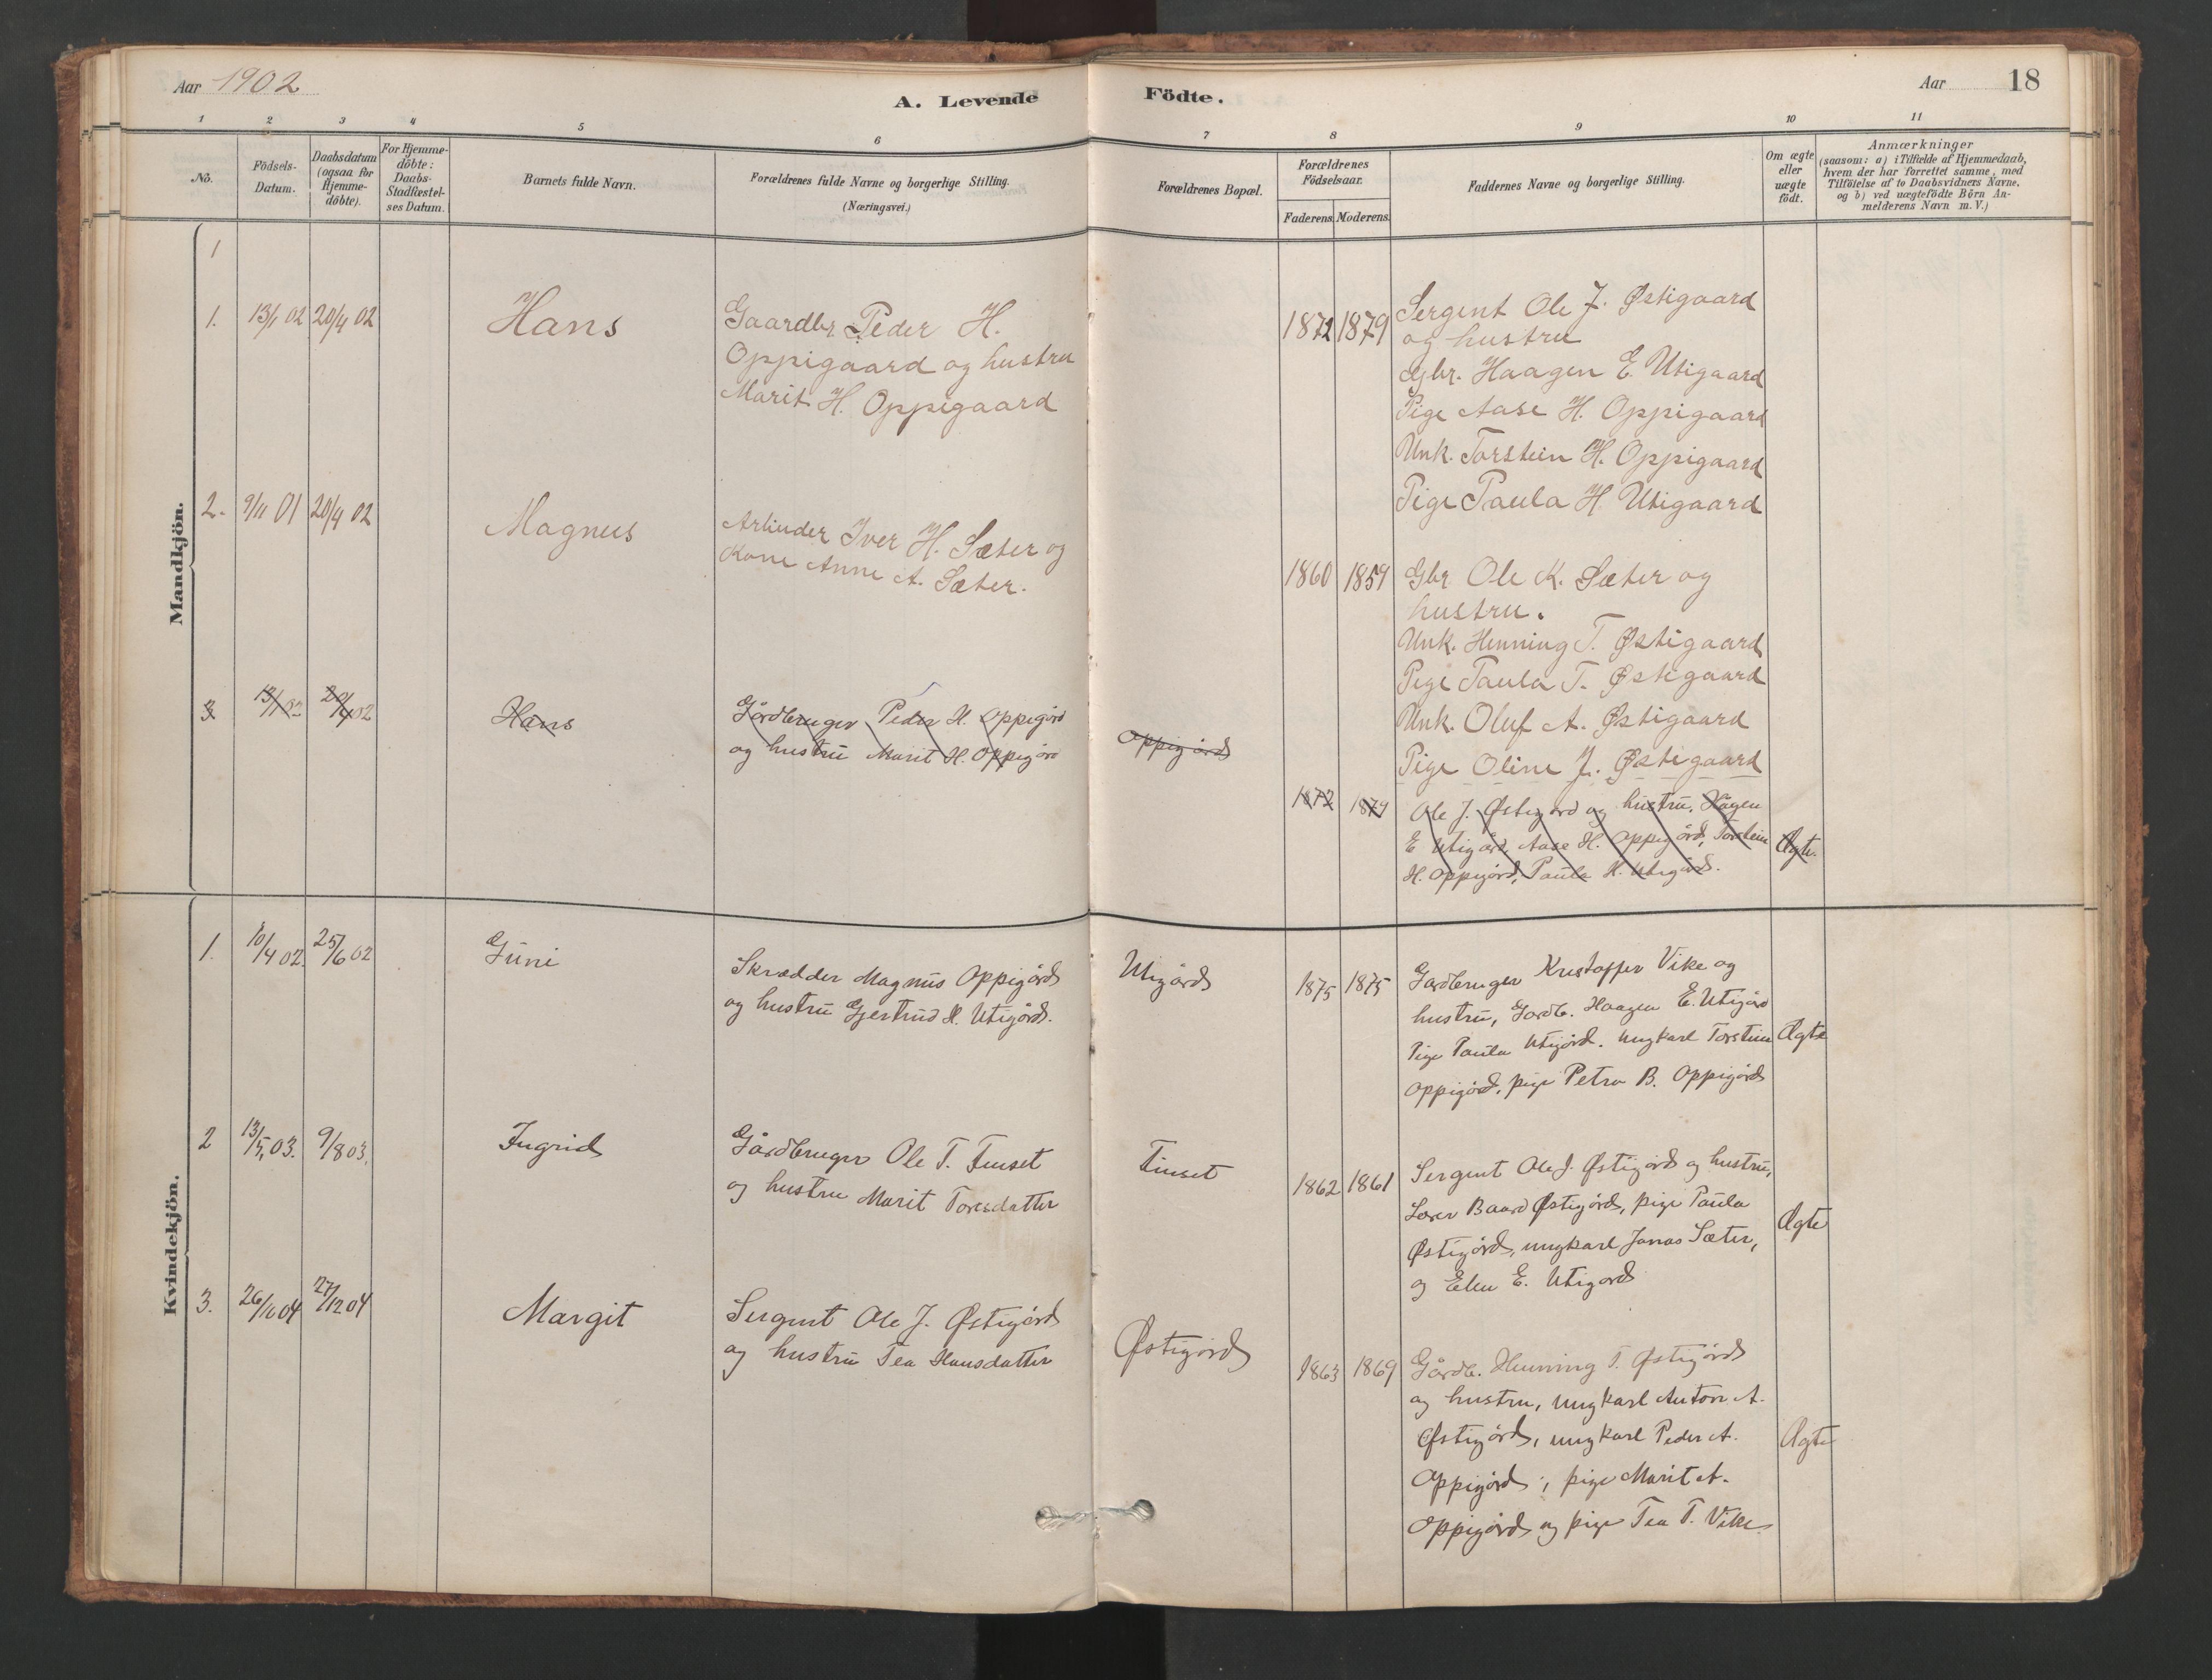 Aar 1902
A. Levende Födte.
Aar 18
1 2 3 4 5 6 7 8 9 10 11
No.
Födsels-
Datum.
Daabsdatum
(ogsaa for
Hjemme-
döbte).
For Hjemme-
döbte:
Daabs-
Stadfæstel-
ses Datum.
Barnets fulde Navn.
Forældrenes fulde Navne og borgerlige Stilling.
(Næringsvei.)
Forældrenes Bopæl.
Forældrenes
Födselsaar.
Faderens. Moderens.
Faddernes Navne og borgerlige Stilling.
Om ægte
eller
uægte
födt.
Anmærkninger
(saasom: a) i Tilfælde af Hjemmedaab,
hvem der har forrettet samme, med
Tilföielse af to Daabsvidners Navne,
og b) ved uægtefödte Börn An-
melderens Navn m. V.)
Mandkjön.
1
1. 13/1 02 20/4 02
Hans
Gaardbr. Peder H.
Oppigaard og hustru
Marit H. Oppigaard
1872 1879
Sergent Ole J. Østigaard
og hustru
Gbr. Haagen E. Utigaard
Pige Aase H. Oppigaard
Unk. Torstein H. Oppigaard
Pige Paula H. Utigaard
2. 9/11 01 20/4 02
Magnus
Arbiuder Iver H. Sæter og
Kone Anne A. Sæter.
1860 1859
Gbr Ole K. Sæter og
hustru.
Unk. Henning T. Østigaard
Pige Paula T. Østigaard
Unk. Oluf A. Østigaard
Pige Oline J. Østigaard
3 13/1 02 20/4 02
Hans
Gårdbruger Peder H. Oppigård
og hustru Marit H. Oppigård
Oppigård
1872 1879
Ole J. Østigård og hustru, Hågen
E Utigård, Aase H. Oppigård, Torstein
H. Oppigård, Paula H. Utigård.
Ægte.
Kvindekjön.
1. 10/4 02. 25/6 02
Guni
Skrædder Magnus Oppigård
og hustru Gjertrud H. Utigård.
Utigård
1875 1875
Gardbruger Kristoffer Vike og
hustru, Gardb. Haagen E. Utigård
Pige Paula Utigård. Ungkarl Torstein
Oppigård, pige Petra B. Oppigård
Ægte
2 13/5, 03. 9/8 03.
Ingrid
Gårdbruger Ole T. Finset
og hustru Marit Toresdatter
Finset
1862 1861
Sergent Ole J. Østigård og hustru,
Lærer Baard Østigård, pige Paula
Østigård, ungkarl Jonas Sæter,
og Elen E. Utigard
Ægte
3. 26/10 04 27/12 04
Margit
Sergent Ole J. Østigård
og hustru Tea Hansdatter
Østigård
1863 1869
Gårdb. Henning T. Østigård
og hustru, ungkarl Anton A.
Østigård, ungkarl Peder A.
Oppigård, pige Marit A.
Oppigård og pige Tea T. Vike
Ægte